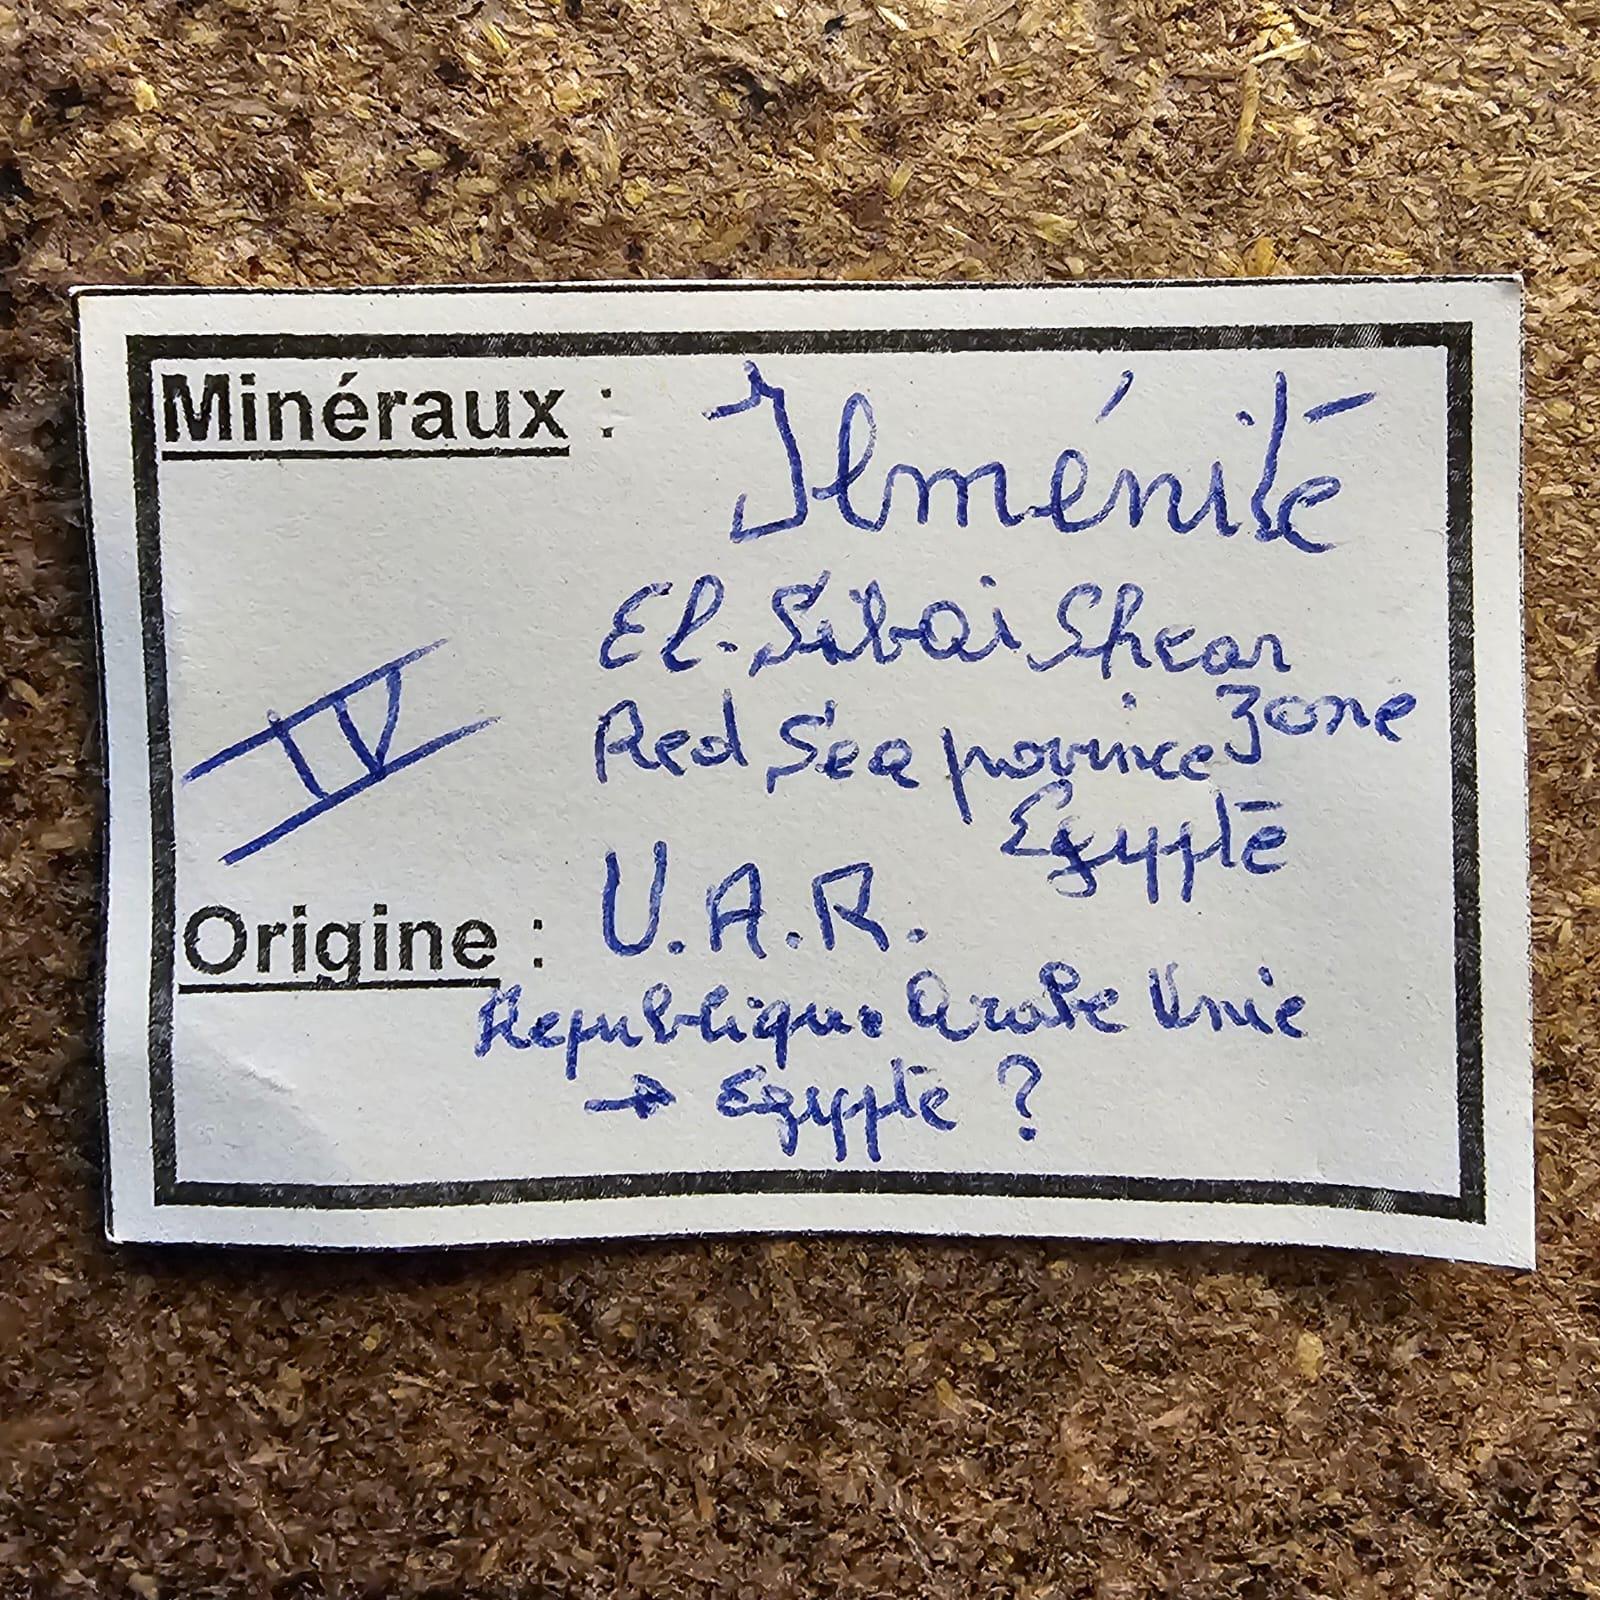 Minéraux : Ilménite
El. Sibai Shear
Zone
Red Sea province
Egypte
IV
Origine : U.A.R.
Republique Arabe Unie
→ Egypte ?